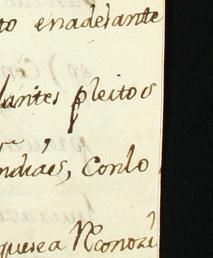 to enadelante
lantes pleitos
ndias, conlo
quesea Rconozi